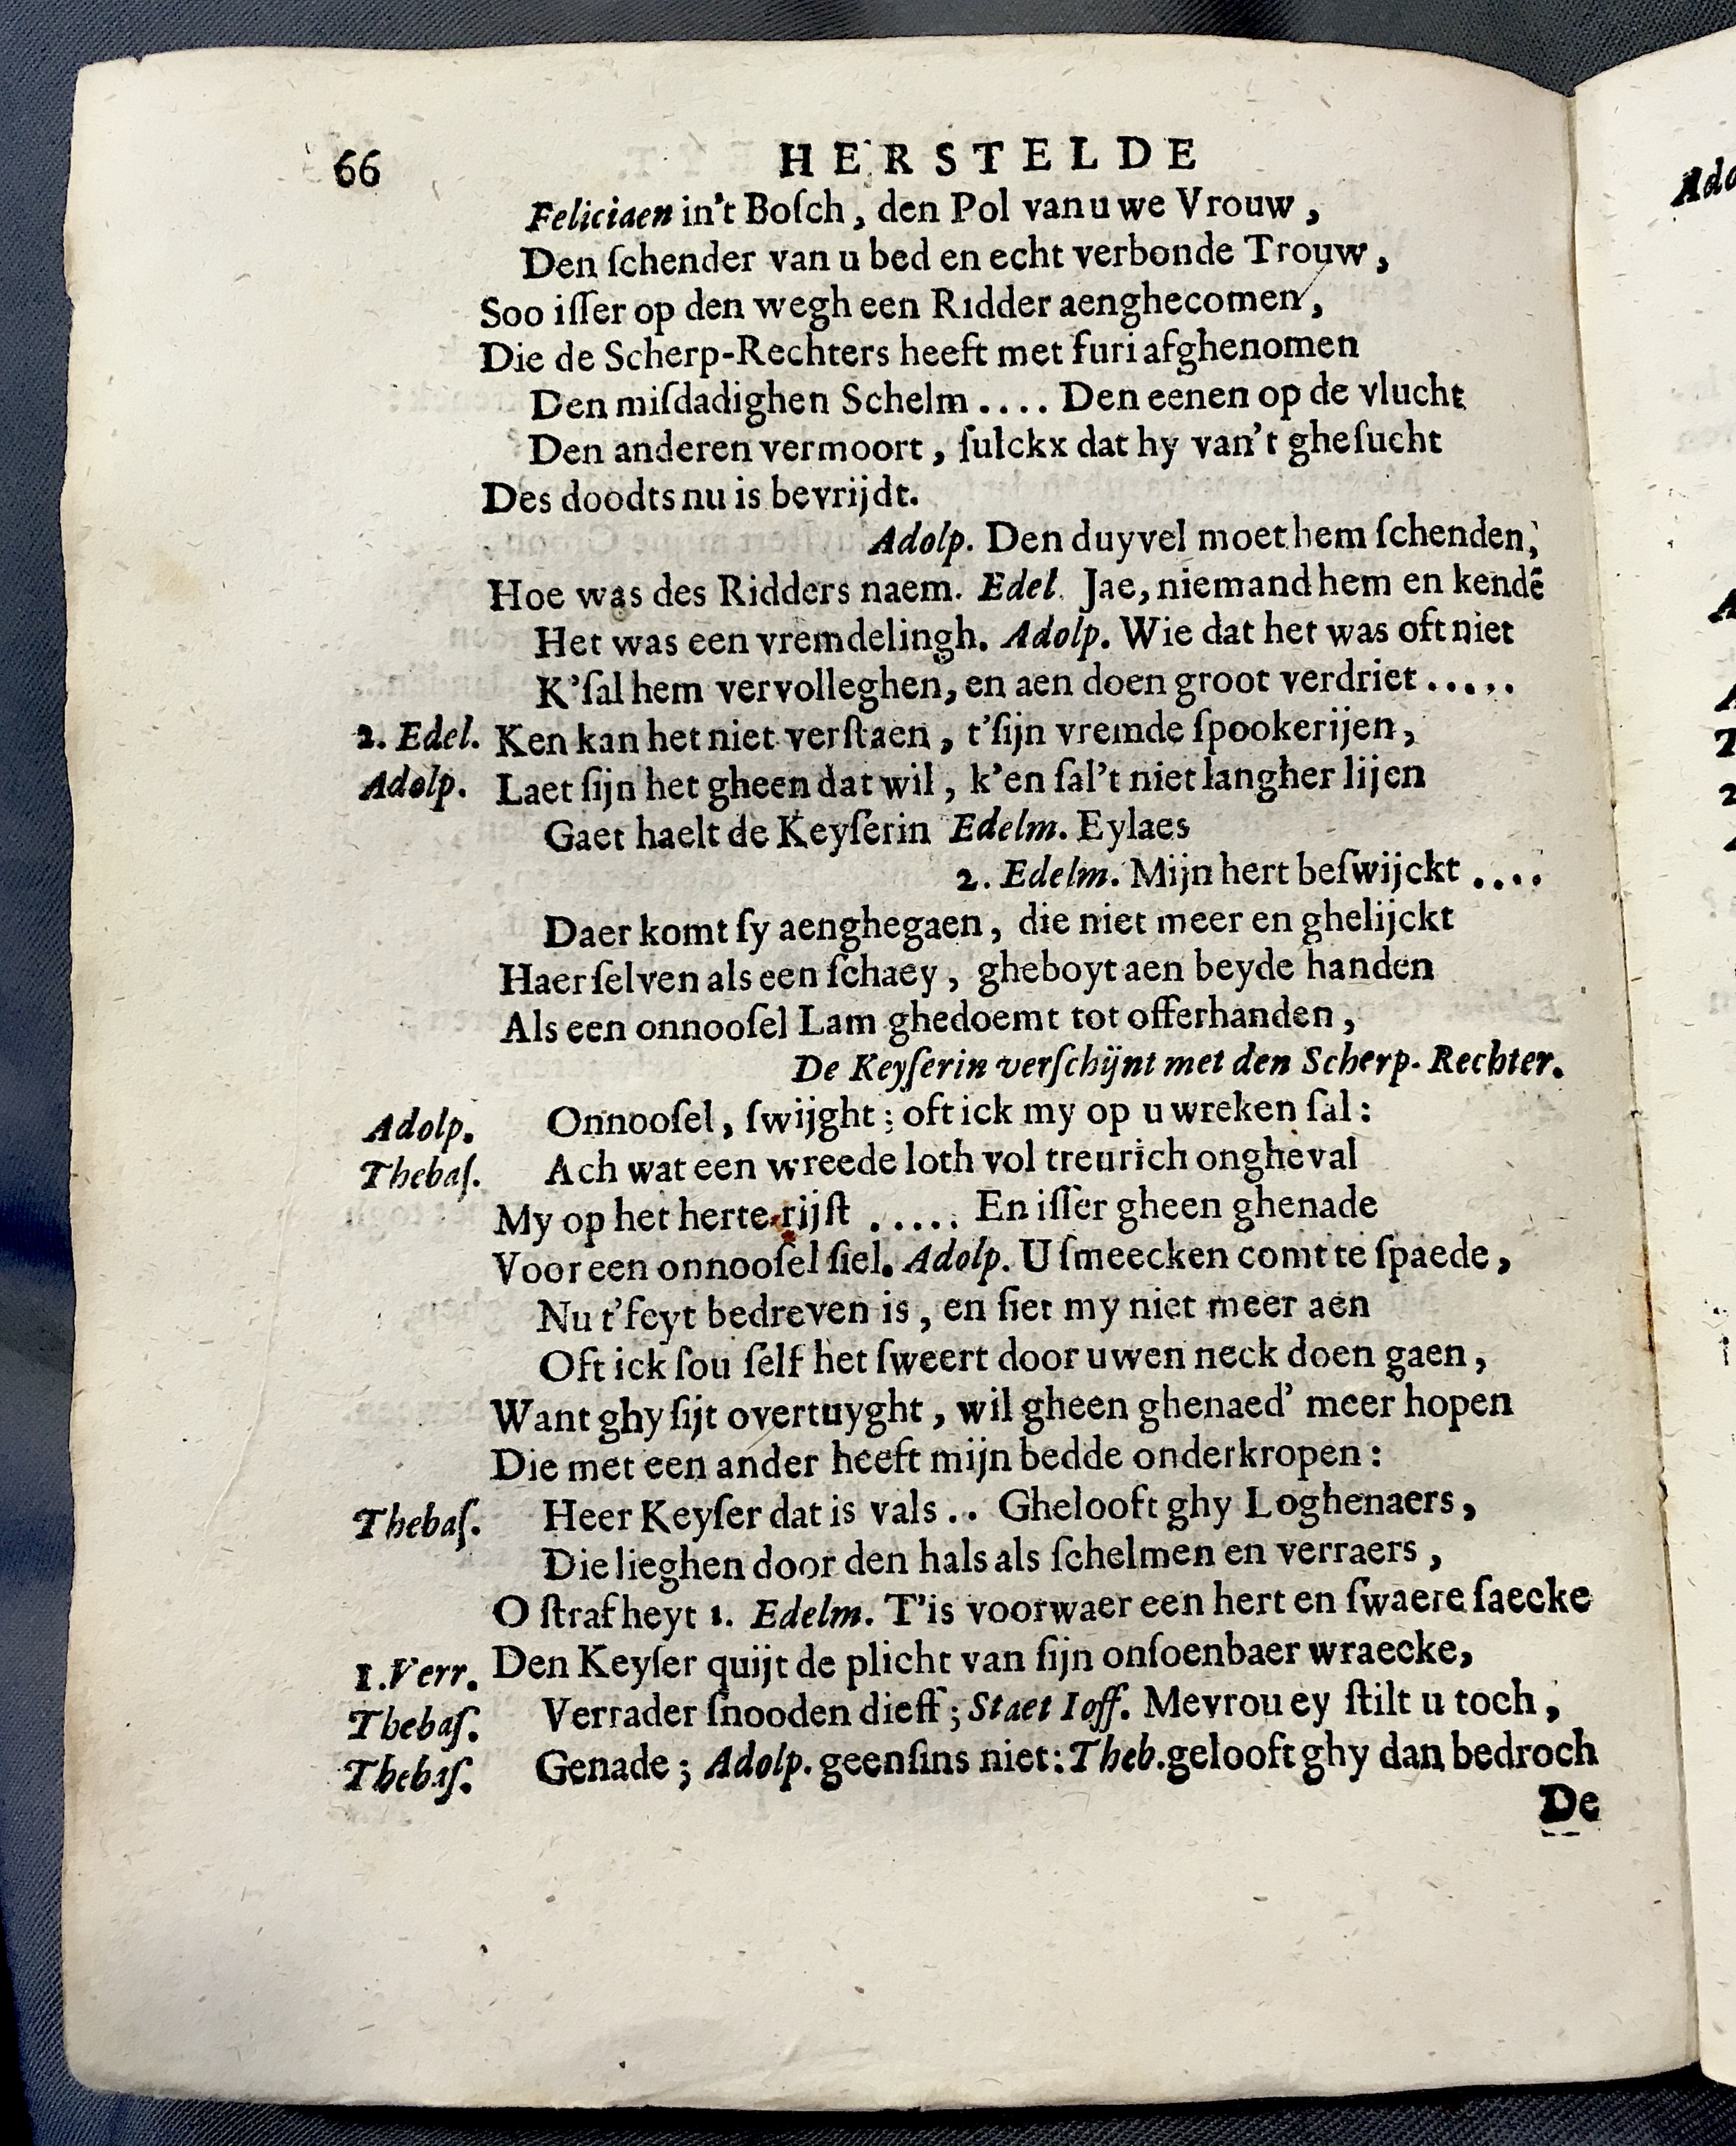 66 HERSTELDE
Feliciaen in't Boſch, den Pol van uwe Vrouw,
Den ſchender van u bed en echt verbonde Trouw,
Soo iſſer op den wegh een Ridder aenghecomen,
Die de Scherp-Rechters heeft met furi afghenomen
Den miſdadighen Schelm .... Den eenen op de vlucht
Den anderen vermoort, ſulckx dat hy van't gheſucht
Des doodts nu is bevrijdt.
Adolp. Den duyvel moet hem ſchenden,
Hoe was des Ridders naem. Edel. Jae, niemand hem en kendē
Het was een vremdelingh. Adolp. Wie dat het was oft niet
K'ſal hem vervolleghen, en aen doen groot verdriet .....
2. Edel. Ken kan het niet verſtaen, t'ſijn vremde ſpookerijen,
Adolp. Laet ſijn het gheen dat wil, k'en ſal't niet langher lijen
Gaet haelt de Keyſerin Edelm. Eylaes
2. Edelm. Mijn hert beſwijckt ....
Daer komt ſy aenghegaen, die niet meer en ghelijckt
Haer ſelven als een ſchaey, gheboyt aen beyde handen
Als een onnooſel Lam ghedoemt tot offerhanden,
De Keyſerin verſchijnt met den Scherp-Rechter.
Adolp. Onnooſel, ſwijght; oft ick my op u wreken ſal:
Thebaſ. Ach wat een wreede loth vol treurich ongheval
My op het herte rijſt ..... En iſſer gheen ghenade
Voor een onnooſel ſiel. Adolp. U ſmeecken comt te ſpaede,
Nu t'feyt bedreven is, en ſiet my niet meer aen
Oft ick ſou ſelf het ſweert door uwen neck doen gaen,
Want ghy ſijt overtuyght, wil gheen ghenaed' meer hopen
Die met een ander heeft mijn bedde onderkropen:
Thebaſ. Heer Keyſer dat is vals .. Ghelooft ghy Loghenaers,
Die lieghen door den hals als ſchelmen en verraers,
O ſtrafheyt 1. Edelm. T'is voorwaer een hert en ſwaere ſaecke
1. Verr. Den Keyſer quijt de plicht van ſijn onſoenbaer wraecke,
Thebaſ. Verrader ſnooden dieff; Staet Ioff. Mevrou ey ſtilt u toch,
Thebaſ. Genade; Adolp. geenſins niet: Theb. gelooft ghy dan bedroch
De